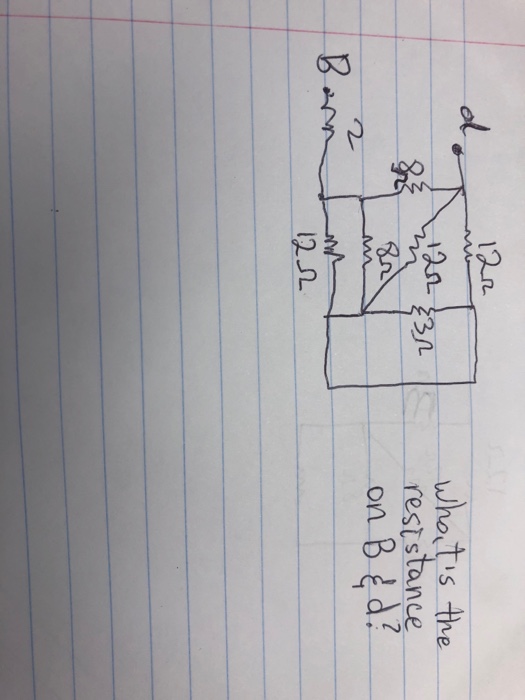 d
12Ω
8Ω
12Ω
3Ω
8Ω
B
2
12Ω
what is the
resistance
on B & d?